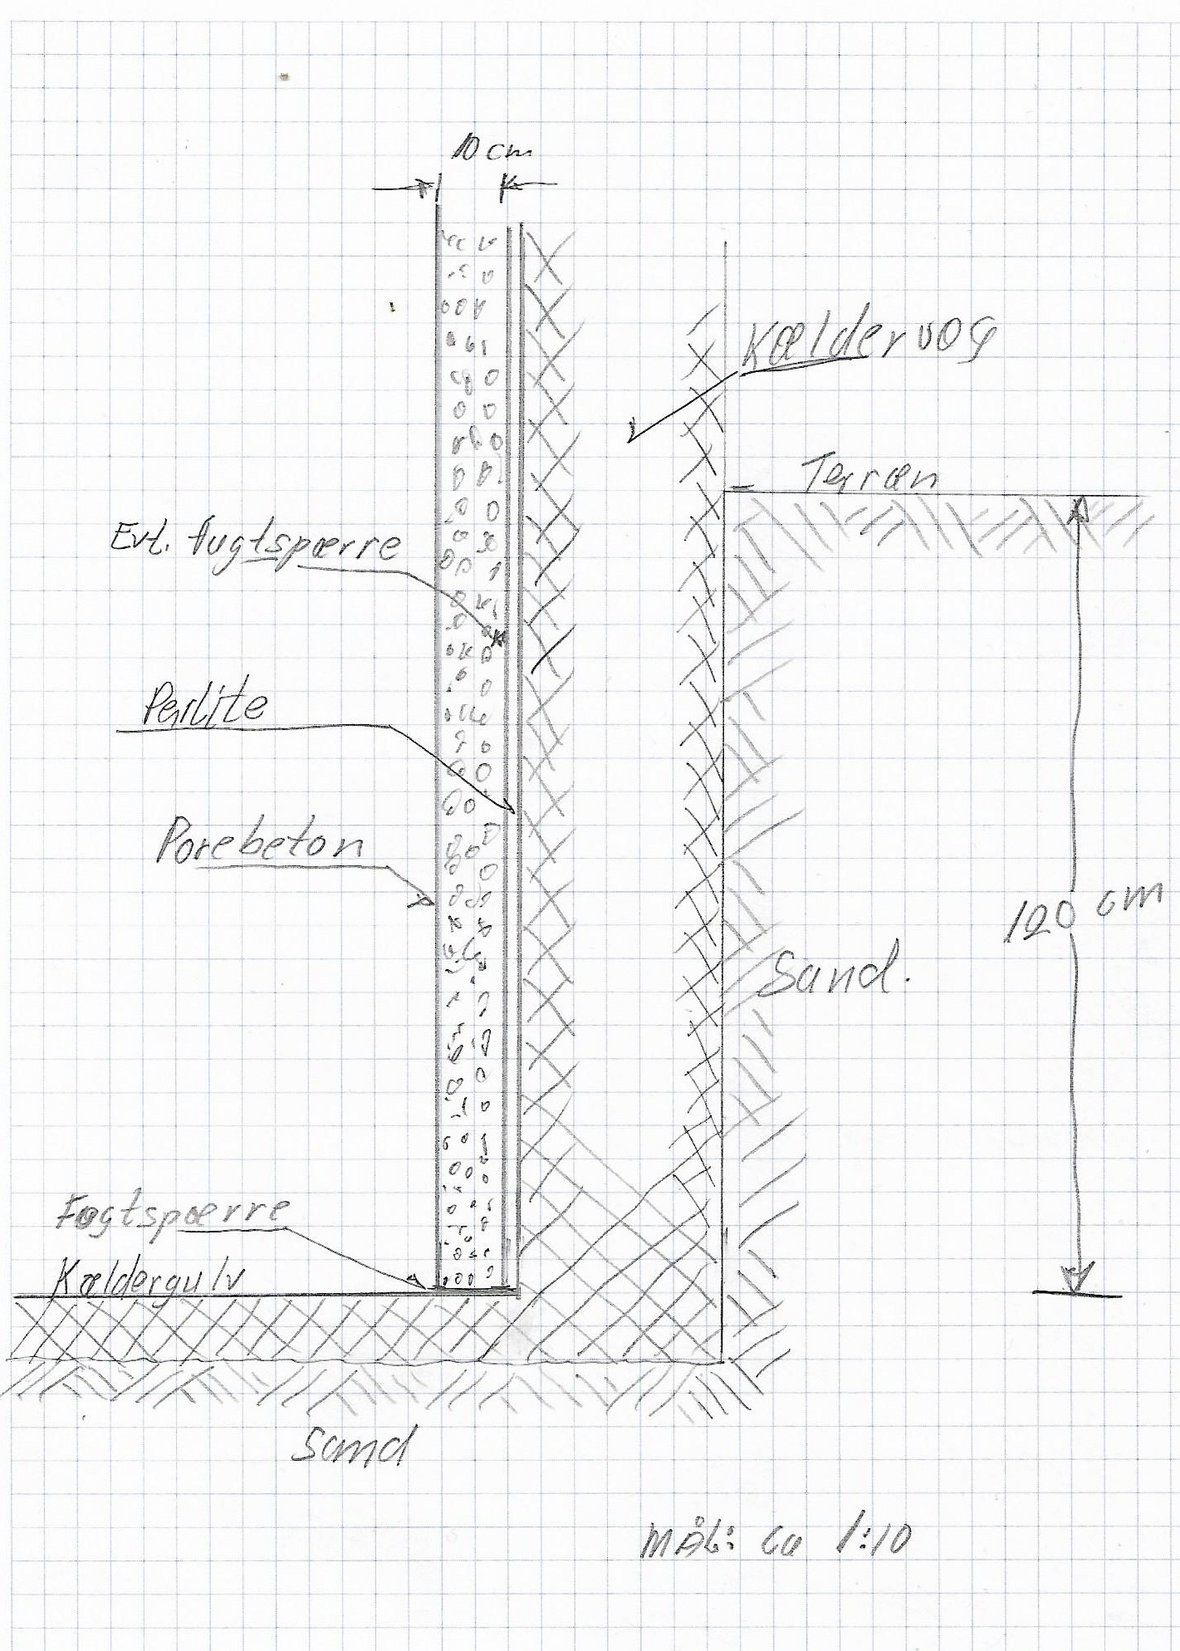 10 cm
Kældervæg
Terræn
Evt. fugtspærre
Perlite
Porebeton
120 cm
Sand.
Fugtspærre
Kældergulv
Sand
MÅL: ca 1:10